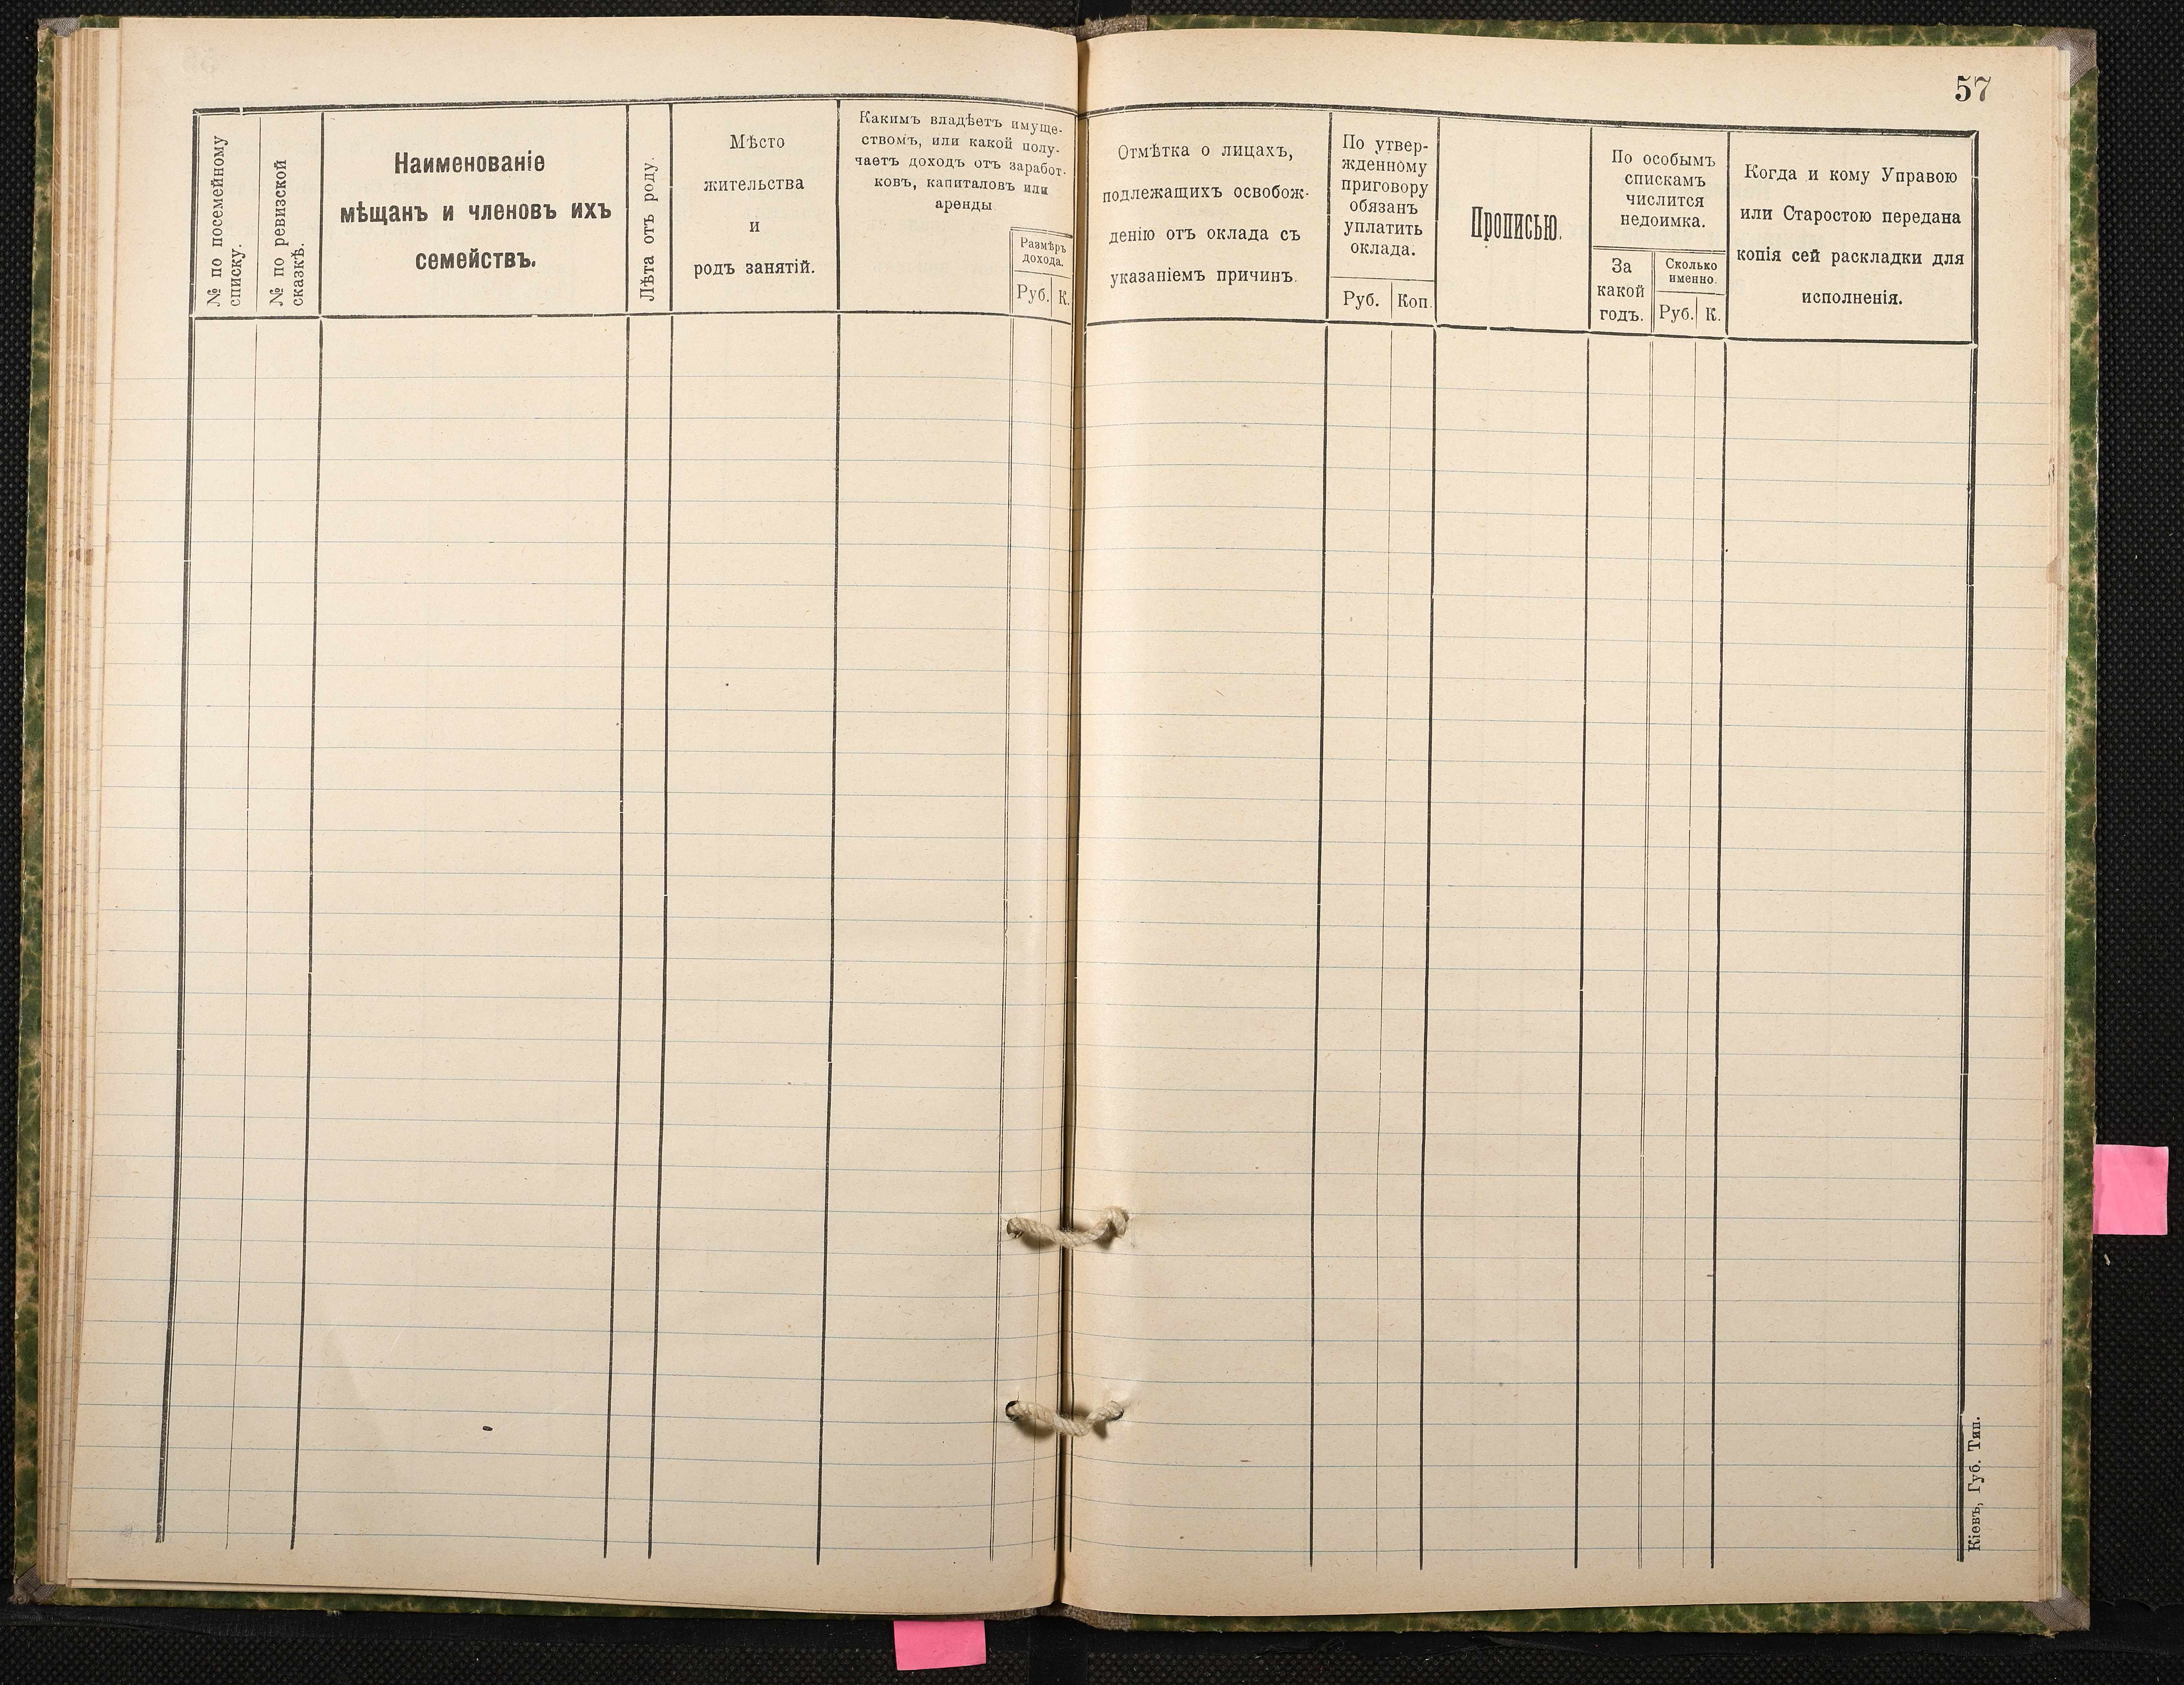 57
№ по посемейному
списку.
№ по ревизской
сказкѣ.
Наименованіе
мѣщанъ и членовъ ихъ
семействъ.
Лѣта отъ роду.
Мѣсто
жительства
и
родъ занятій.
Какимъ владѣетъ имуще-
ствомъ, или какой полу-
чаетъ доходъ отъ заработ-
ковъ, капиталовъ или
аренды
Размѣръ
дохода.
Руб. К.
Отмѣтка о лицахъ,
подлежащихъ освобож-
денію отъ оклада съ
указаніемъ причинъ.
По утвер-
жденному
приговору
обязанъ
уплатить
оклада.
Руб. Коп.
Прописью.
По особымъ
спискамъ
числится
недоимка.
За
какой
годъ.
Сколько
именно.
Руб. К.
Когда и кому Управою
или Старостою передана
копія сей раскладки для
исполненія.
Кіевъ, Губ. Тип.